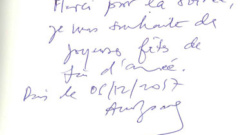 Merci pour la soirée,
je vous souhaite de
joyeuses fêts de
fin d'année.
le 06/12/2017